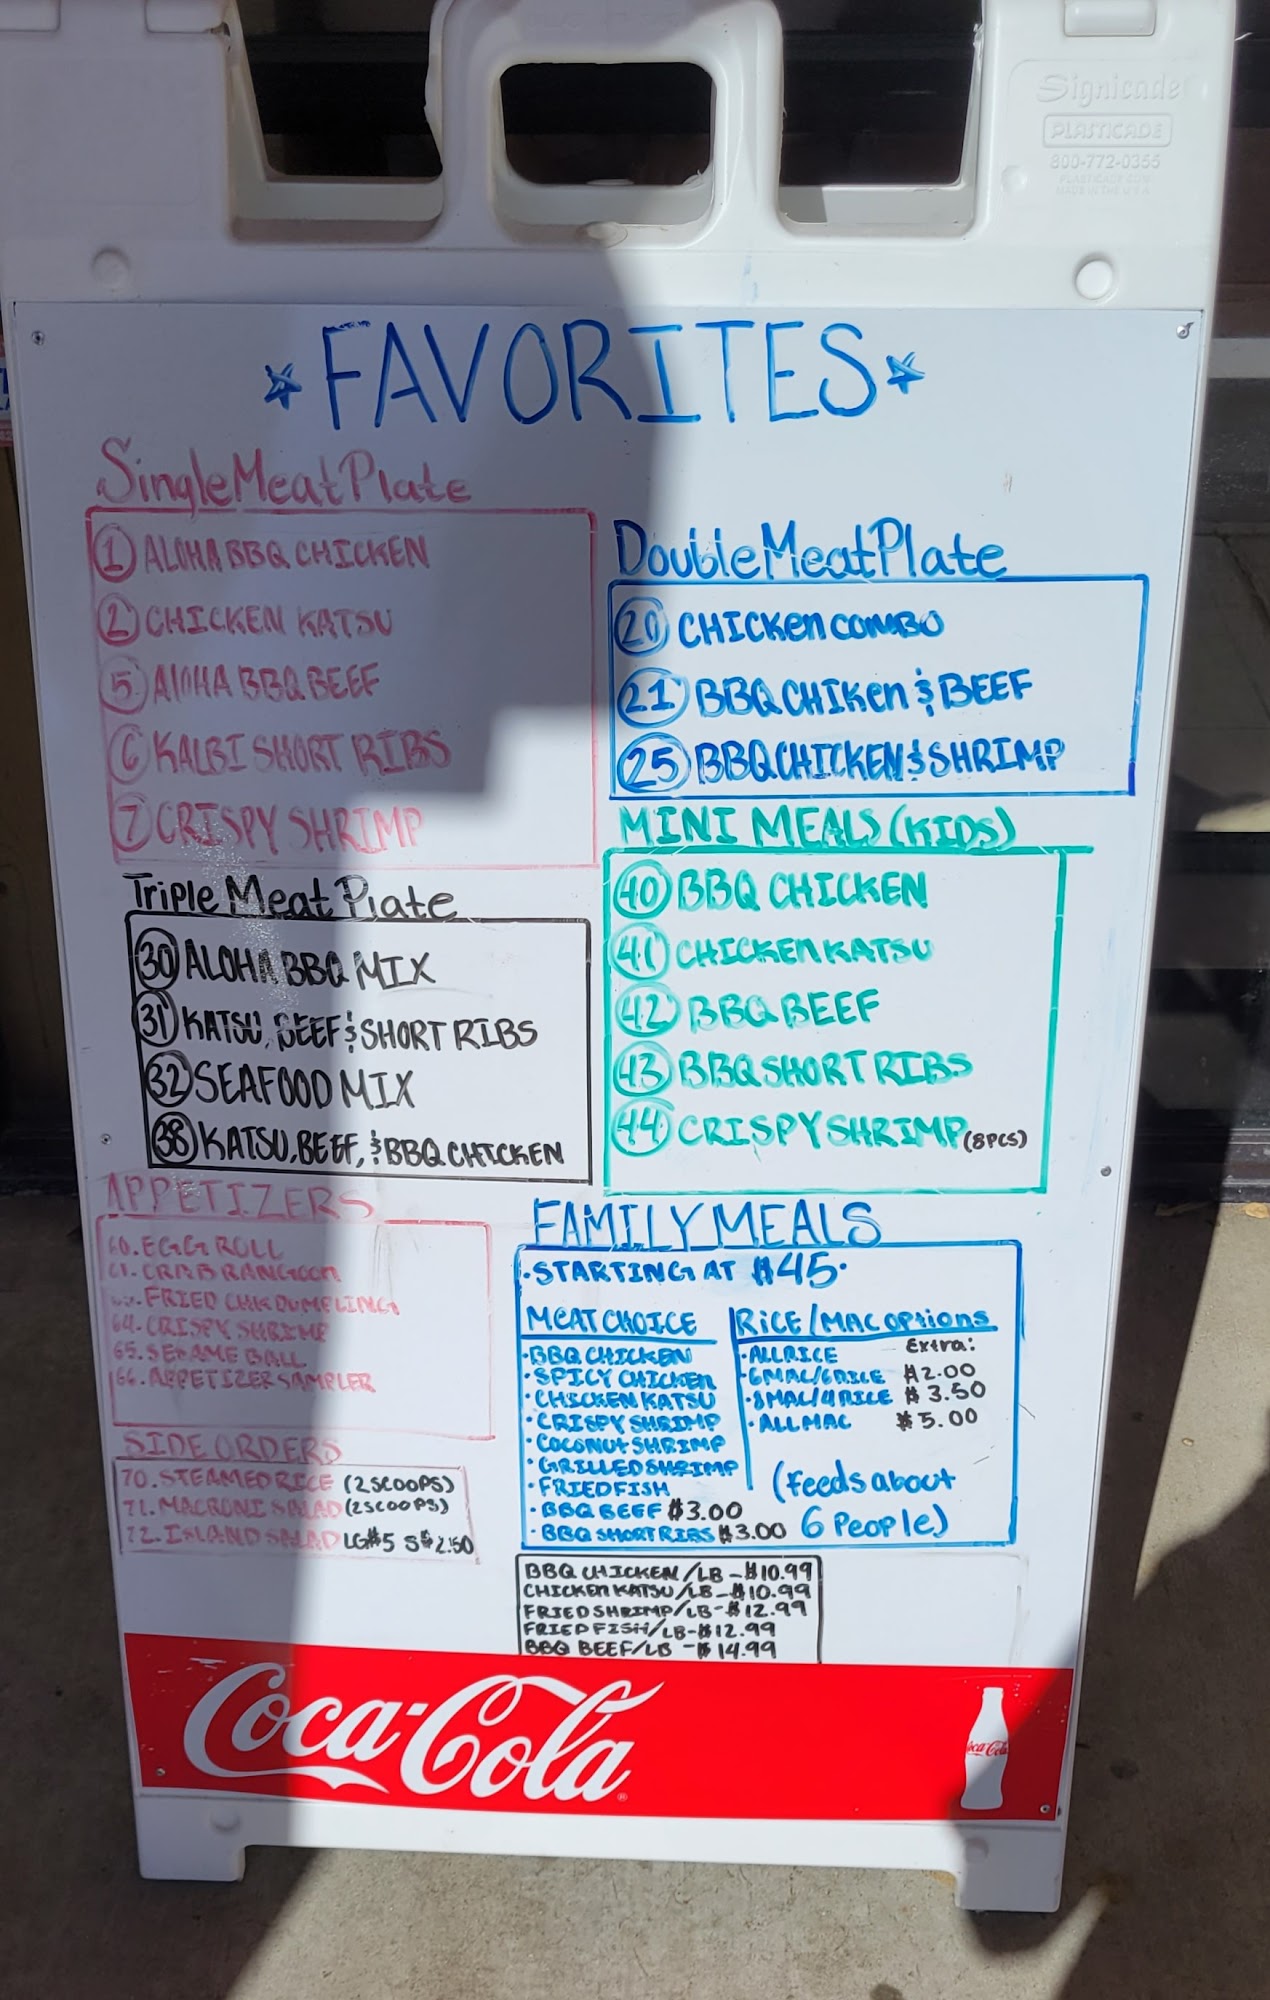 Signicade
PLASTICADE
800-772-0355
PLASTICADE.COM
MADE IN THE U.S.A.
*FAVORITES*
Single Meat Plate
1 ALOHA BBQ CHICKEN
2 CHICKEN KATSU
5 AlOHA BBQ BEEF
6 KALBI SHORT RIBS
7 CRISPY SHRIMP
Double Meat Plate
20 CHICKen COMBO
21 BBQ CHIKen & BEEF
25 BBQ CHICKEN & SHRIMP
Triple Meat Plate
30 ALOHA BBQ MIX
31 KATSU, BEEF & SHORT RIBS
32 SEAFOOD MIX
38 KATSU, BEEF, & BBQ CHICKEN
MINI MEALS (KIDS)
40 BBQ CHICKEN
41 CHICKEN KATSU
42 BBQ BEEF
43 BBQ SHORT RIBS
44 CRISPY SHRIMP (8PCS)
APPETIZERS
60. EGG ROLL
61. CRAB RANGOON
FRIED CHK DUMPLING
64. CRISPY SHRIMP
65. SESAME BALL
66. APPETIZER SAMPLER
SIDE ORDERS
70. STEAMED RICE (2 SCOOPS)
71. MACRONI SALAD (2 SCOOPS)
72. ISLAND SALAD LG $5 S $2.50
FAMILY MEALS
· STARTING AT $45 ·
MEAT CHOICE
· BBQ CHICKEN
· SPICY CHICKEN
· CHICKEN KATSU
· CRISPY SHRIMP
· COCONUT SHRIMP
· GRILLED SHRIMP
· FRIED FISH
· BBQ BEEF $3.00
· BBQ SHORT RIBS $3.00
RiCE/MAC OPtions
Extra:
· ALL RICE
· 6 MAC/6 RICE $2.00
· 8 MAC/4 RICE $3.50
· ALL MAC $5.00
(feeds about
6 People)
BBQ CHICKEN/LB - $10.99
CHICKEN KATSU/LB - $10.99
FRIED SHRIMP/LB - $12.99
FRIED FISH/LB - $12.99
BBQ BEEF/LB - $14.99
Coca-Cola
Coca-Cola